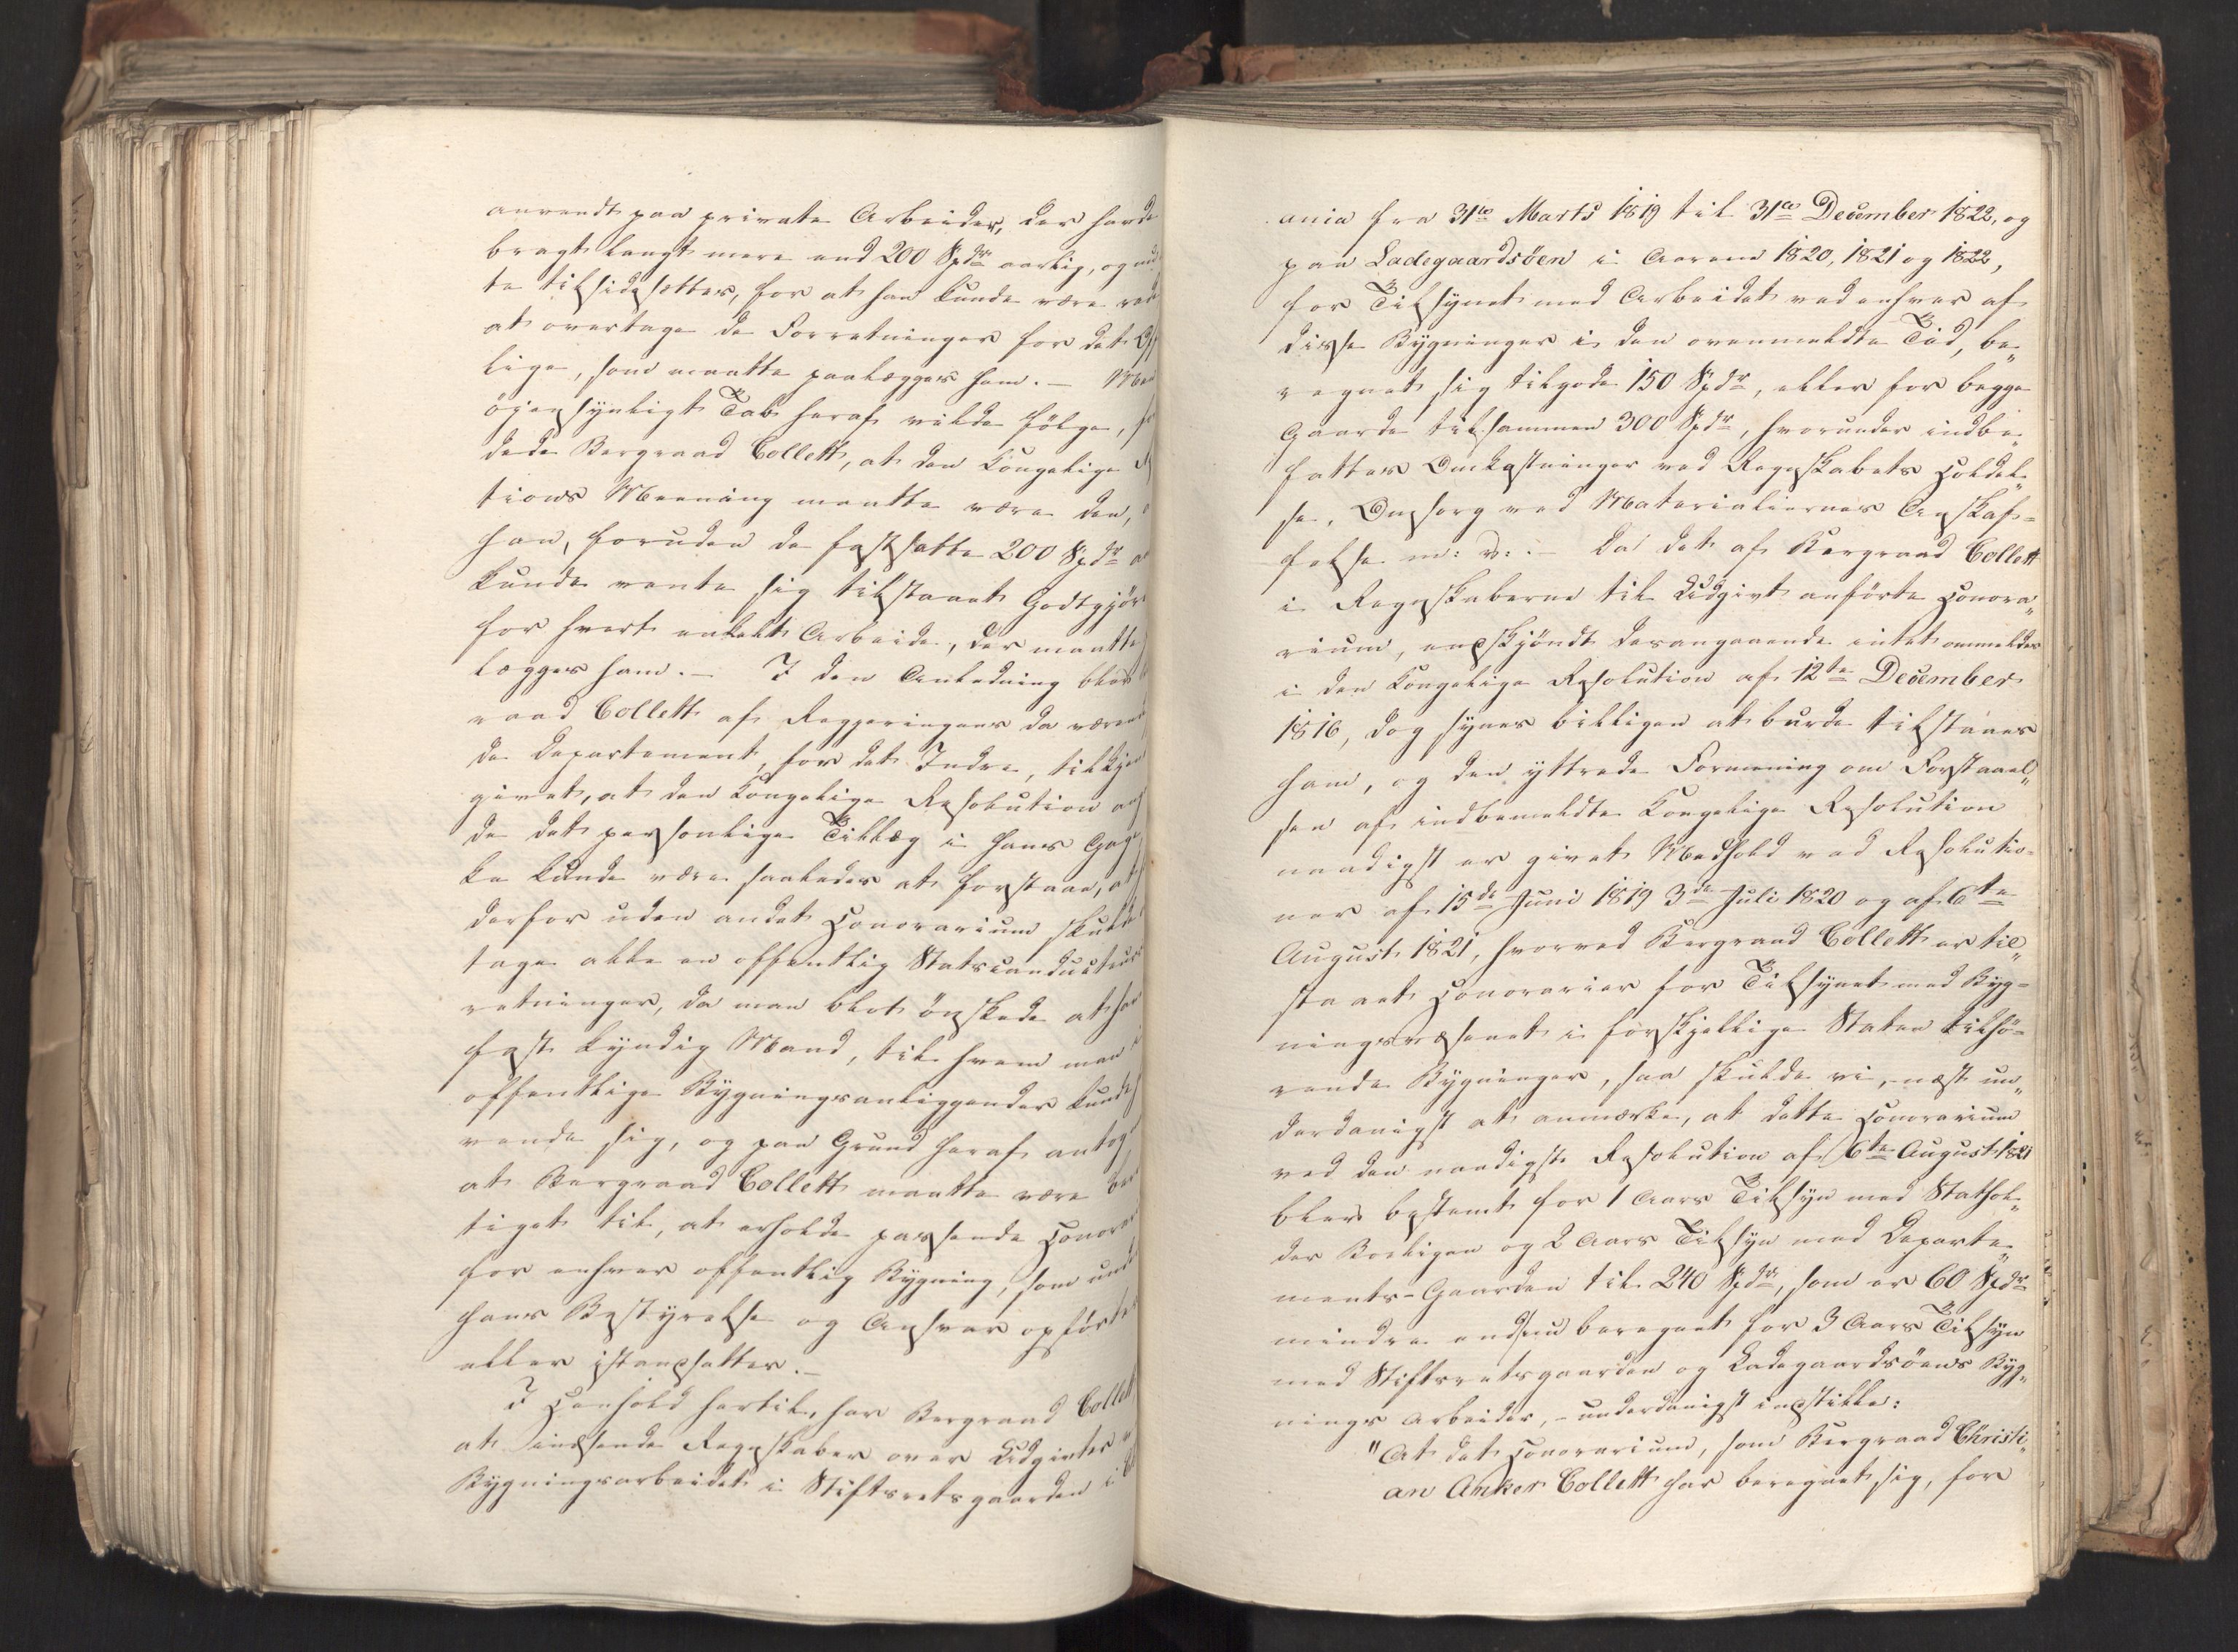 anvendt paa private Arbeider, der havde
bragt langt mere end 200 Spdr aarlig, og
te tilsidesættes, for at han kunde være rede
at overtage de Forretninger for det Off
lige, som maatte paalægges ham. — Men
öiensynligt Tab heraf vilde fölge, for
dede Bergraad Collett, at den Kongelige Reso
tions Meening maatte være den,
han, foruden de fastsatte 200 Spdr
kunde vente sig tilstaaet Godtgjör
for hvert enkelt Arbeide, der maatte
lægges ham. — I den Anledning blev
raad Collett af Regjeringens da væren
de Departement, for det Indre, tilkjen
givet, at den Kongelige Resolution an
de det personlige Tillæg i hans Gage
ke kunde være saaledes at forstaae, at
derfor uden andet Honorarium skulde
tage alle en offentlig Statsconducteurs
retninger, da man blot önskede at have
fast kyndig Mand, til hvem man i
offentlige Bygningsanliggender kunde
vende sig, og paa Grund heraf antoges
at Bergraad Collett maatte være be
tiget til, at erholde passende Honorar
for enhver offentlig Bygning, som under
hans Bestyrelse og Ansvar opförtes
eller istandsattes. —
I Henhold hertil, har Bergraad Collett
at indsende Regnskaber over Udgivter
Bygningsarbeidet i Stiftsretsgaarden i
ania fra 31te Marts 1819 til 31te December 1822, og
paa Ladegaardsöen i Aarene 1820, 1821 og 1822,
for Tilsynet med Arbeidet ved enhver af
disse Bygninger i den ovenmeldte Tid, be„
regnet sig tilgode 150 Spdr, eller for begge
Gaarde tilsammen 300 Spdr, hvorunder indbe„
fattes Omkostninger ved Regnskabets Holdel„
se, Omsorg ved Materialiernes Anskaf-
felse m: v: — Da det af Bergraad Collett
i Regnskaberne til Udgivt anförte Honora„
rium, endskjöndt desangaaende intet ommeldes
i den Kongelige Resolution af 12te December
1816, dog synes billigen at burde tilstaaes
ham, og den yttrede Formening om Forstaael„
sen af indbemeldte Kongelige Resolution
naadigst er givet Medhold ved Resolutio-
ner af 15de Juni 1819 3de Juli 1820 og af 6te
August 1821, hvorved Bergraad Collett er til„
staaet Honorarier for Tilsynet med Byg-
ningsvæsenet i forskjellige Staten tilhö-
rende Bygninger, saa skulde vi, næst un„
derdanigst at anmærke, at dette Honorarium
ved den naadigste Resolution af 6te August 1821
blev bestemt for 1 Aars Tilsyn med Stathol„
der Boeligen og 2 Aars Tilsyn med Departe„
ments-Gaarden til 240 Spdr, som er 60 Spdr
mindre end nu beregnet for 3 Aars Tilsyn
med Stiftsretsgaarden og Ladegaardsöens Byg„
nings Arbeider, - underdanigst indstille:
"At det Honorarium, som Bergraad Christi„
an Anker Collett har beregnet sig, for